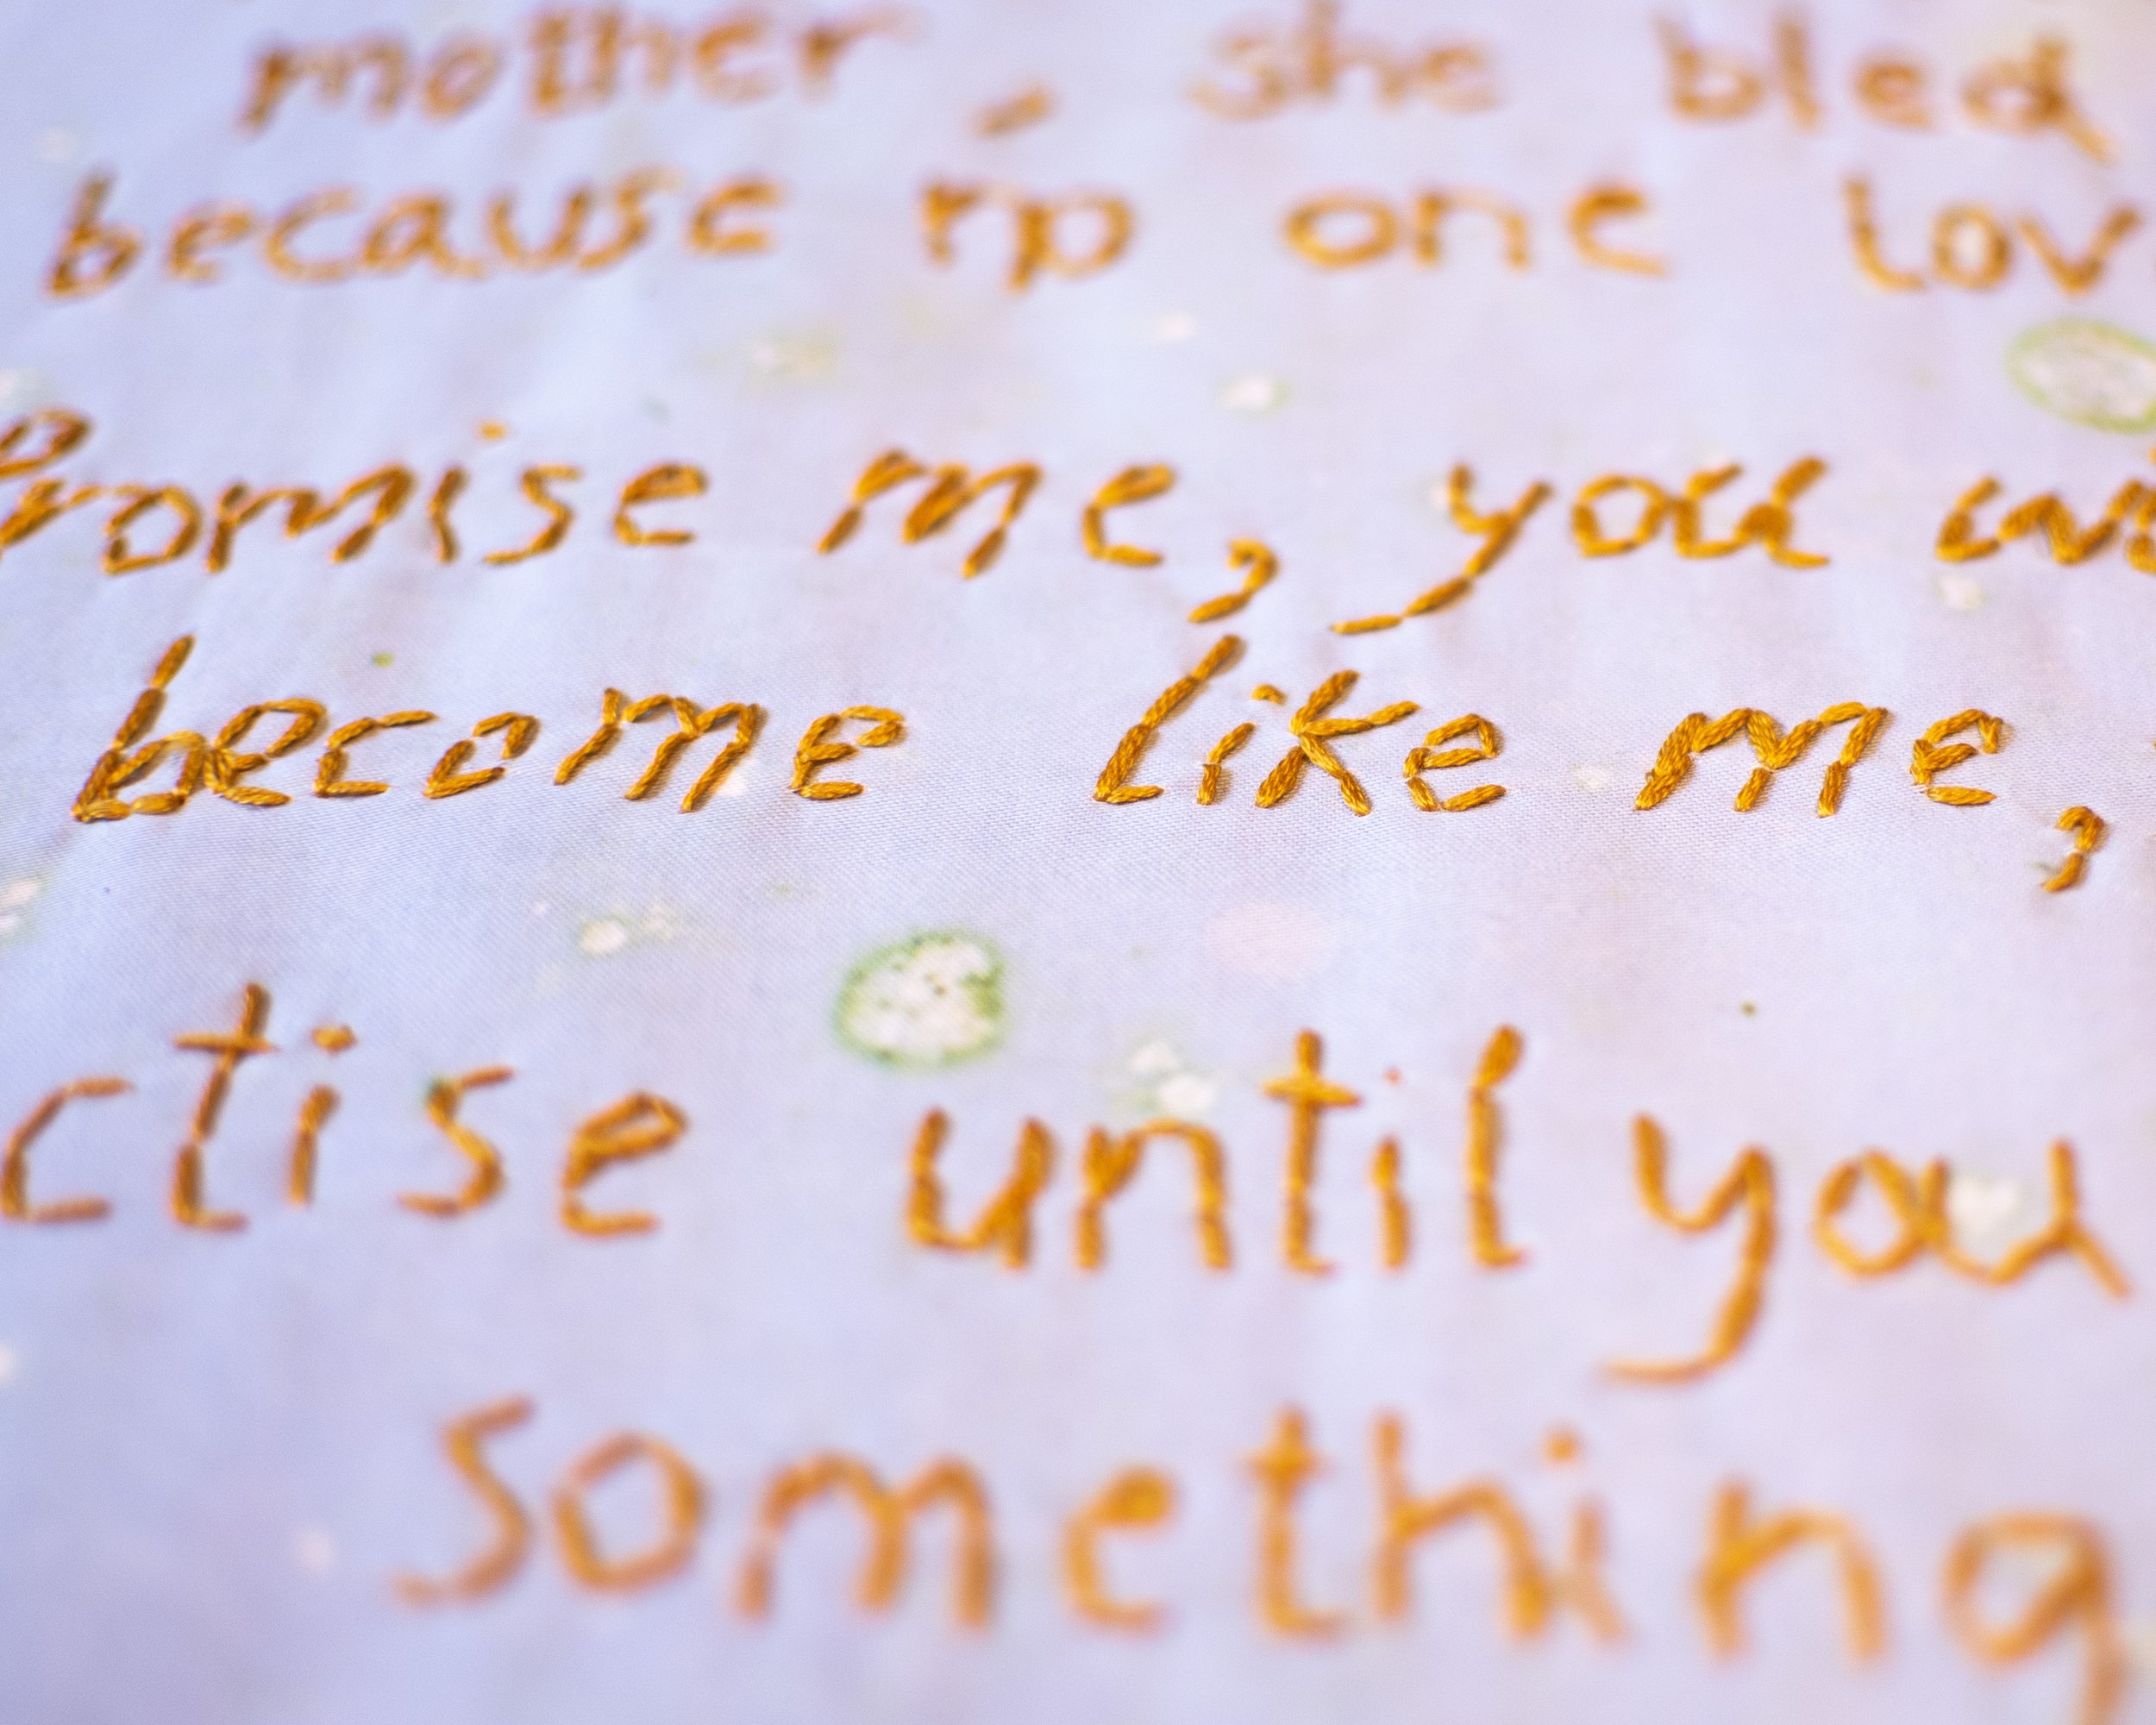 mother, she bled
because no one lov
Promise me, you wi
become like me,
ctise until you
something